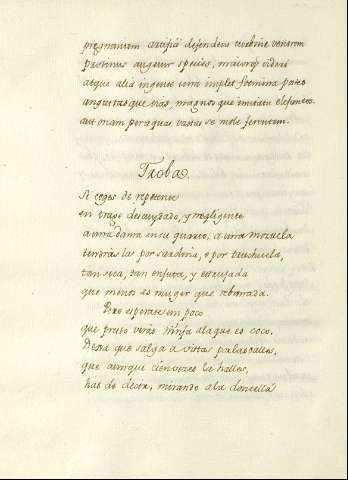 pregnantem artifici defendens turbine ventrem
protinus augetur species, maiorq3 videri
atque alia ingente
angustas que vias, magnos que imitata elefantes
aut orcam per aquas vastas se mole ferentem.
Troba.
Si coges de repente
en traje descuydado, y negligente
a una dama en su quarto, a una mozuela
tendras la por sardina, o por truchuela,
tan seca, tan enjuta, y estrujada
que menos es muger que rebanada.
Pero esperate un poco
que presto verás a la que es coco.
Dexa que salga a vistas por las calles,
que aunque cien vezes la halles,
has de dezir, mirando a la donzella